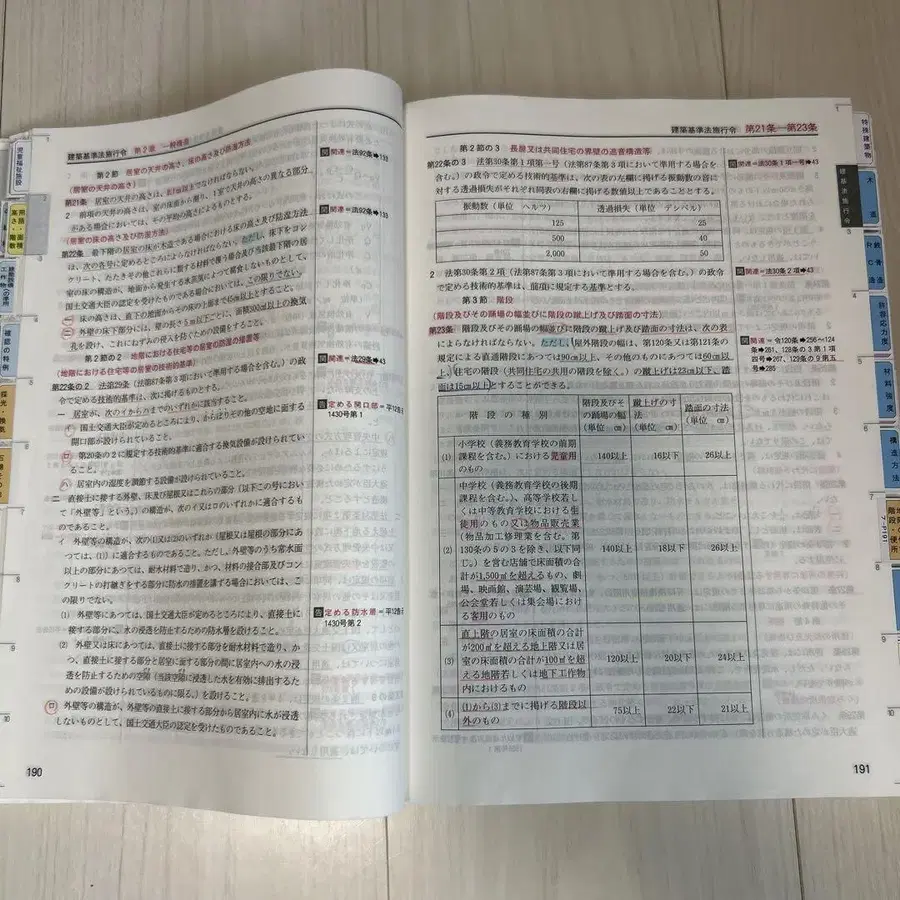 建築基準法施行令 第2章 一般構造
第2節 居室の天井の高さ、床の高さ及び防湿方法
(居室の天井の高さ)
第21条 居室の天井の高さは、2.1m以上でなければならない。
2 前項の天井の高さは、室の床面から測り、1室で天井の高さの異なる部分
がある場合においては、その平均の高さによるものとする。
(居室の床の高さ及び防湿方法)
第22条 最下階の居室の床が木造である場合における床の高さ及び防湿方法
は、次の各号に定めるところによらなければならない。ただし、床下をコン
クリート、たたきその他これらに類する材料で覆う場合及び当該最下階の居
室の床の構造が、地面から発生する水蒸気によって腐食しないものとして、
国土交通大臣の認定を受けたものである場合においては、この限りでない。
一 床の高さは、直下の地面からその床の上面まで45㎝以上とすること。
二 外壁の床下部分には、壁の長さ5m以下ごとに、面積300㎠以上の換気
孔を設け、これにねずみの侵入を防ぐための設備をすること。
第2節の2 地階における住宅等の居室の防湿の措置等
(地階における住宅等の居室の技術的基準)
第22条の2 法第29条(法第87条第3項において準用する場合を含む。)の政
令で定める技術的基準は、次に掲げるものとする。
一 居室が、次のイからハまでのいずれかに該当すること。
イ 国土交通大臣が定めるところにより、からぼりその他の空地に面する
開口部が設けられていること。
ロ 第20条の2に規定する技術的基準に適合する換気設備が設けられてい
ること。
ハ 居室内の湿度を調節する設備が設けられていること。
二 直接土に接する外壁、床及び屋根又はこれらの部分(以下この号におい
て「外壁等」という。)の構造が、次のイ又はロのいずれかに適合するも
のであること。
イ 外壁等の構造が、次の(1)又は(2)のいずれか(屋根又は屋根の部分にあ
つては、(1))に適合するものであること。ただし、外壁等のうち常水面
以上の部分にあつては、耐水材料で造り、かつ、材料の接合部及びコン
クリートの打継ぎをする部分に防水の措置を講ずる場合においては、こ
の限りでない。
(1) 外壁等にあつては、国土交通大臣が定めるところにより、直接土に
接する部分に、水の浸透を防止するための防水層を設けること。
(2) 外壁又は床にあつては、直接土に接する部分を耐水材料で造り、か
つ、直接土に接する部分と居室に面する部分の間に居室内への水の浸
透を防止するための空隙(当該空隙に浸透した水を有効に排出するた
めの設備が設けられているものに限る。)を設けること。
ロ 外壁等の構造が、外壁等の直接土に接する部分から居室内に水が浸透
しないものとして、国土交通大臣の認定を受けたものであること。
関連=法92条➡133
関連=法92条➡133
関連=法29条➡43
定める開口部=平12告
1430号第1
定める防水層=平12告
1430号第2
190
建築基準法施行令 第21条―第23条
第2節の3 長屋又は共同住宅の界壁の遮音構造等
第22条の3 法第30条第1項第一号(法第87条第3項において準用する場合を
含む。)の政令で定める技術的基準は、次の表の左欄に掲げる振動数の音に
対する透過損失がそれぞれ同表の右欄に掲げる数値以上であることとする。
振動数(単位 ヘルツ) 透過損失(単位 デシベル)
125 25
500 40
2,000 50
2 法第30条第2項(法第87条第3項において準用する場合を含む。)の政令
で定める技術的基準は、前項に規定する基準とする。
第3節 階段
(階段及びその踊場の幅並びに階段の蹴上げ及び踏面の寸法)
第23条 階段及びその踊場の幅並びに階段の蹴上げ及び踏面の寸法は、次の表
によらなければならない。ただし、屋外階段の幅は、第120条又は第121条の
規定による直通階段にあつては90㎝以上、その他のものにあつては60㎝以
上、住宅の階段(共同住宅の共用の階段を除く。)の蹴上げは23㎝以下、踏
面は15㎝以上とすることができる。
階段の種別 階段及びその踊場の幅(単位 ㎝) 蹴上げの寸法(単位 ㎝) 踏面の寸法(単位 ㎝)
(1) 小学校(義務教育学校の前期
課程を含む。)における児童用
のもの 140以上 16以下 26以上
(2) 中学校(義務教育学校の後期
課程を含む。)、高等学校若し
くは中等教育学校における生
徒用のもの又は物品販売業
(物品加工修理業を含む。第
130条の5の3を除き、以下同
じ。)を営む店舗で床面積の合
計が1,500㎡を超えるもの、劇
場、映画館、演芸場、観覧場、
公会堂若しくは集会場におけ
る客用のもの 140以上 18以下 26以上
(3) 直上階の居室の床面積の合計
が200㎡を超える地上階又は居
室の床面積の合計が100㎡を超
える地階若しくは地下工作物
内におけるもの 120以上 20以下 24以上
(4) (1)から(3)までに掲げる階段以
外のもの 75以上 22以下 21以上
関連=法30条1項一号➡43
関連=法30条2項➡43
関連=令120条➡256～124
条➡261、128条の3第1項
四号➡267、129条の9第五
号➡285
191
児童福祉施設
確認の特例
採光・換気
特殊建築物
建築基準法施行令
木造
鉄骨造
RC造
許容応力度
材料強度
構造方法